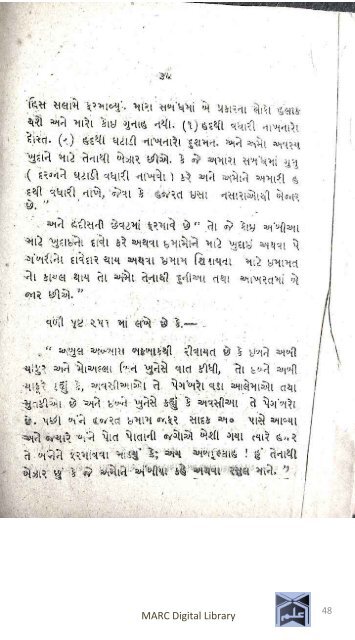 ૩૪
દિસ સલામે ફરમાવ્યું. મારા સબંધમાં બે પ્રકારના લોકો હલાક
થશે અને મારો કોઇ ગુનાહ નથી. (૧) હદથી વધારી નાખનારો
દોસ્ત. (૨) હદથી ઘટાડી નાખનારો દુશમન. અને અમો અવશ્ય
ખુદાને માટે તેનાથી બેજાર છીએ. કે જે અમારા સબંધમાં ગુલુ
( દરજ્જને ઘટાડી વધારી નાખવો ) કરે અને અમોને અમારી હ
દથી વધારી નાખે, જેવા કે હજરત ઇસા નસારાઓથી બેજાર
છે. "
અને હદીસની છેવટમાં ફરમાવે છે " તો જે કોઇ અંબીઆ
માટે ખુદાઇનો દાવો કરે અથવા ઇમામોને માટે ખુદાઇ અથવા પે
ગંબરીનો દાવેદાર થાય અથવા ઇમામ સિવાયના માટે ઇમામત
નો કાયલ થાય તો અમો તેનાથી દુનીઆ તથા આખરતમાં બે
જાર છીએ. "
વળી પૃષ્ટ ૨૫૧ માં લખે છે કે.—
" અબુલ અબ્બાસ બકબાકથી રીવાયત છે કે ઇબ્ને અબી
યાફુર અને મોઅલ્લા બિન ખુનેસે વાત કીધી, તો ઇબ્ને અબી
યાફુરે કહ્યું કે, અવસીઆઓ તે પેગંબરો વડા આલેમાઓ તથા
મુતકીઓ છે અને ઇબ્ને ખુનેસે કહ્યું કે અવસીઆ તે પેગંબરો
છે. પછી બંને હજરત ઇમામ જાફર સાદક અ૦ પાસે આવ્યા
અને જ્યારે બંને પોત પોતાની જગોએ બેશી ગયા ત્યારે હજરત
તે બંનેને ફરમાવવા માંડ્યું કે; અય અબદુલ્લાહ ! હું તેનાથી
બેજાર છું કે જે અમોને અંબીયા કહે અથવા રસુલ માને. "
MARC Digital Library
علم
48